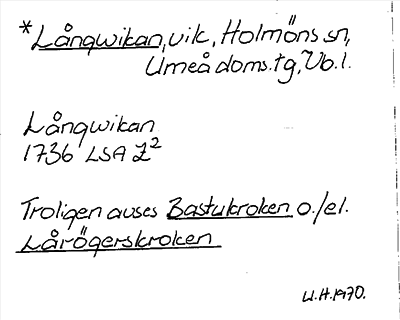 *Långwikan, vik, Holmöns sn,
Umeå doms. tg, Vb. l.
Långwikan
1736 LSA Z²
Troligen avses Bastukroken o./el.
Lårögerskroken
U.H. 1970.